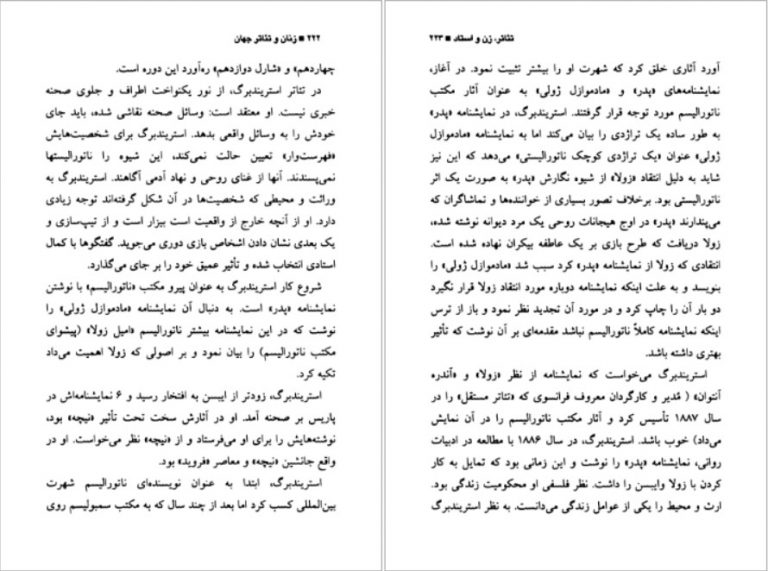 ۲۲۲ ■ زنان و تئاتر جهان
چهاردهم» و «شارل دوازدهم» ره‌آورد این دوره است.
در تئاتر استریندبرگ، از نور یکنواخت اطراف و جلوی صحنه
خبری نیست. او معتقد است: وسائل صحنه نقاشی شده، باید جای
خودش را به وسائل واقعی بدهد. استریندبرگ برای شخصیت‌هایش
«فهرست‌وار» تعیین حالت نمی‌کند، این شیوه را ناتورالیستها
نمی‌پسندند. آنها از غنای روحی و نهاد آدمی آگاهند. استریندبرگ به
وراثت و محیطی که شخصیت‌ها در آن شکل گرفته‌اند توجه زیادی
دارد. او از آنچه خارج از واقعیت است بیزار است و از تیپ‌سازی و
یک بعدی نشان دادن اشخاص بازی دوری می‌جوید. گفتگوها با کمال
استادی انتخاب شده و تأثیر عمیق خود را بر جای می‌گذارد.
شروع کار استریندبرگ به عنوان پیرو مکتب «ناتورالیسم» با نوشتن
نمایشنامه «پدر» است. به دنبال آن نمایشنامه «مادموازل ژولی» را
نوشت که در این نمایشنامه بیشتر ناتورالیسم «امیل زولا» (پیشوای
مکتب ناتورالیسم) را بیان نمود و بر اصولی که زولا اهمیت می‌داد
تکیه کرد.
استریندبرگ، زودتر از ایبسن به افتخار رسید و ۶ نمایشنامه‌اش در
پاریس بر صحنه آمد. او در آثارش سخت تحت تأثیر «نیچه» بود،
نوشته‌هایش را برای او می‌فرستاد و از «نیچه» نظر می‌خواست. او در
واقع جانشین «نیچه» و معاصر «فروید» بود.
استریندبرگ، ابتدا به عنوان نویسنده‌ای ناتورالیسم شهرت
بین‌المللی کسب کرد اما بعد از چند سال که به مکتب سمبولیسم روی
تئاتر، زن و استاد ■ ۲۲۳
آورد آثاری خلق کرد که شهرت او را بیشتر تثبیت نمود. در آغاز،
نمایشنامه‌های «پدر» و «مادموازل ژولی» به عنوان آثار مکتب
ناتورالیسم مورد توجه قرار گرفتند. استریندبرگ، در نمایشنامه «پدر»
به طور ساده یک تراژدی را بیان می‌کند اما به نمایشنامه «مادموازل
ژولی» عنوان «یک تراژدی کوچک ناتورالیستی» می‌دهد که این نیز
شاید به دلیل انتقاد «زولا» از شیوه نگارش «پدر» به صورت یک اثر
ناتورالیستی بود. برخلاف تصور بسیاری از خواننده‌ها و تماشاگران که
می‌پندارند «پدر» در اوج هیجانات روحی یک مرد دیوانه نوشته شده،
زولا دریافت که طرح بازی بر یک عاطفه بیکران نهاده شده است.
انتقادی که زولا از نمایشنامه «پدر» کرد سبب شد «مادموازل ژولی» را
بنویسد و به علت اینکه نمایشنامه دوباره مورد انتقاد زولا قرار نگیرد
دو بار آن را چاپ کرد و در مورد آن تجدید نظر نمود و باز از ترس
اینکه نمایشنامه کاملاً ناتورالیسم نباشد مقدمه‌ای بر آن نوشت که تأثیر
بهتری داشته باشد.
استریندبرگ می‌خواست که نمایشنامه از نظر «زولا» و «آندره
آنتوان» ( مُدیر و کارگردان معروف فرانسوی که «تئاتر مستقل» را در
سال ۱۸۸۷ تأسیس کرد و آثار مکتب ناتورالیسم را در آن نمایش
می‌داد) خوب باشد. استریندبرگ، در سال ۱۸۸۶ با مطالعه در ادبیات
روانی، نمایشنامه «پدر» را نوشت و این زمانی بود که تمایل به کار
کردن با زولا وایبسن را داشت. نظر فلسفی او محکومیت زندگی بود.
ارث و محیط را یکی از عوامل زندگی می‌دانست. به نظر استریندبرگ